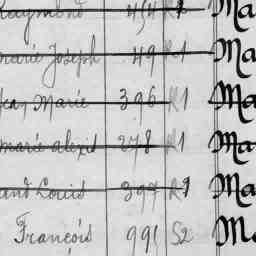 Raymond 454 R1 Ma
marie Joseph 49 R1 Ma
Jean Marie 396 R1 Ma
marie alexis 278 R1 Ma
and Louis 397 R1 Ma
François 991 S2 Ma